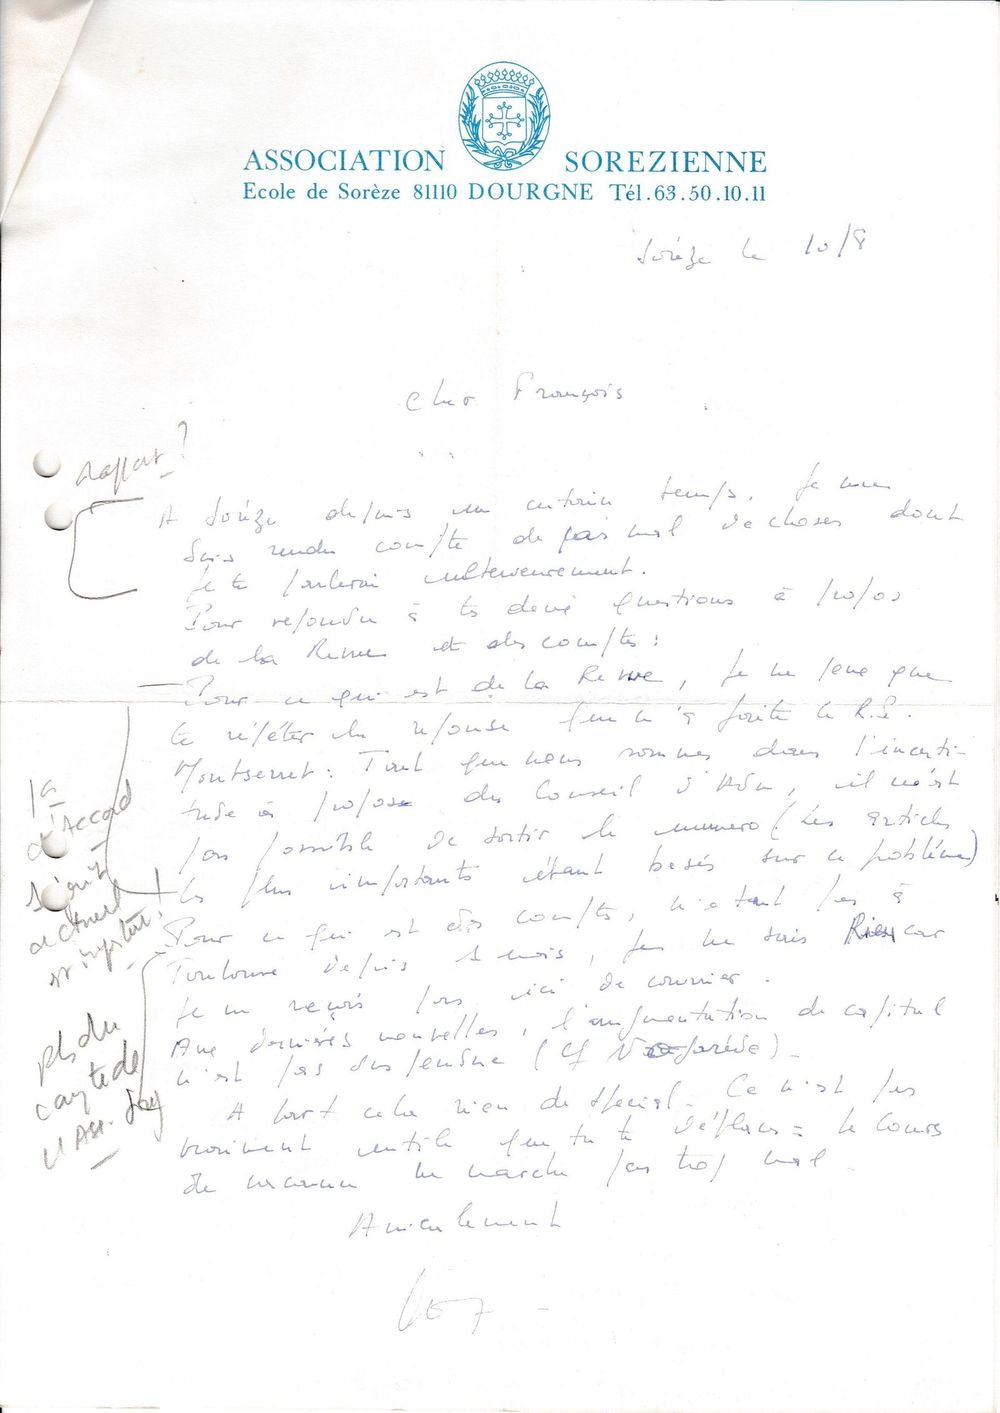 ASSOCIATION SOREZIENNE
Ecole de Sorèze 81110 DOURGNE Tél.63.50.10.11
Sorèze le 10/8
Cher François
Rapport ?
A Sorèze depuis un certain temps. Je me
suis rendu compte de pas mal de choses dont
je te parlerai ulterieurement.
Pour repondre à tes deux questions à propos
de la Revue et des comptes :
Pour ce qui est de la Revue, je ne peux que
te répéter la reponse qu'en a faite le R.P.
Montserret : Tant que nous sommes dans l'incerti-
tude à propos du Conseil d'Adm, il n'est
pas possible de sortir le numero (Les articles
les plus importants étant basés sur ce problème)
Pour ce qui est des comptes, n'étant pas à
Toulouse depuis 1 mois, je ne sais Rien car
je ne reçois pas ici de courrier.
Aux dernières nouvelles, l'augmentation de capital
n'est pas suspendue (cf
A part cela rien de special. Ce n'est pas
vraiment utile que tu te déplaces = le cours
de vacances ne marche pas trop mal
Amicalement
d'Accord
actuel
plus du
compte de